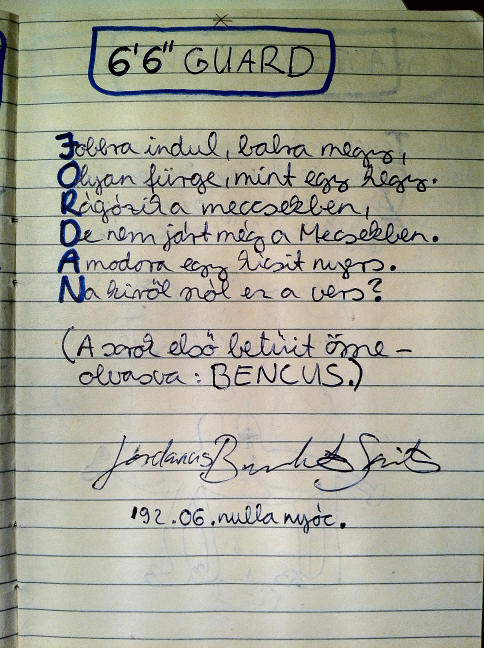 6'6" GUARD
Jobbra indul, balra megy,
Olyan fürge, mint egy hegy.
Rágózik a meccsekben,
De nem járt még a Mecsekben.
A modora egy kicsit nyers.
Na kiről szól ez a vers?
(A sorok első betűit össze-
olvasva: BENCUS.)
Jordanus
'92.06.nulla nyóc.